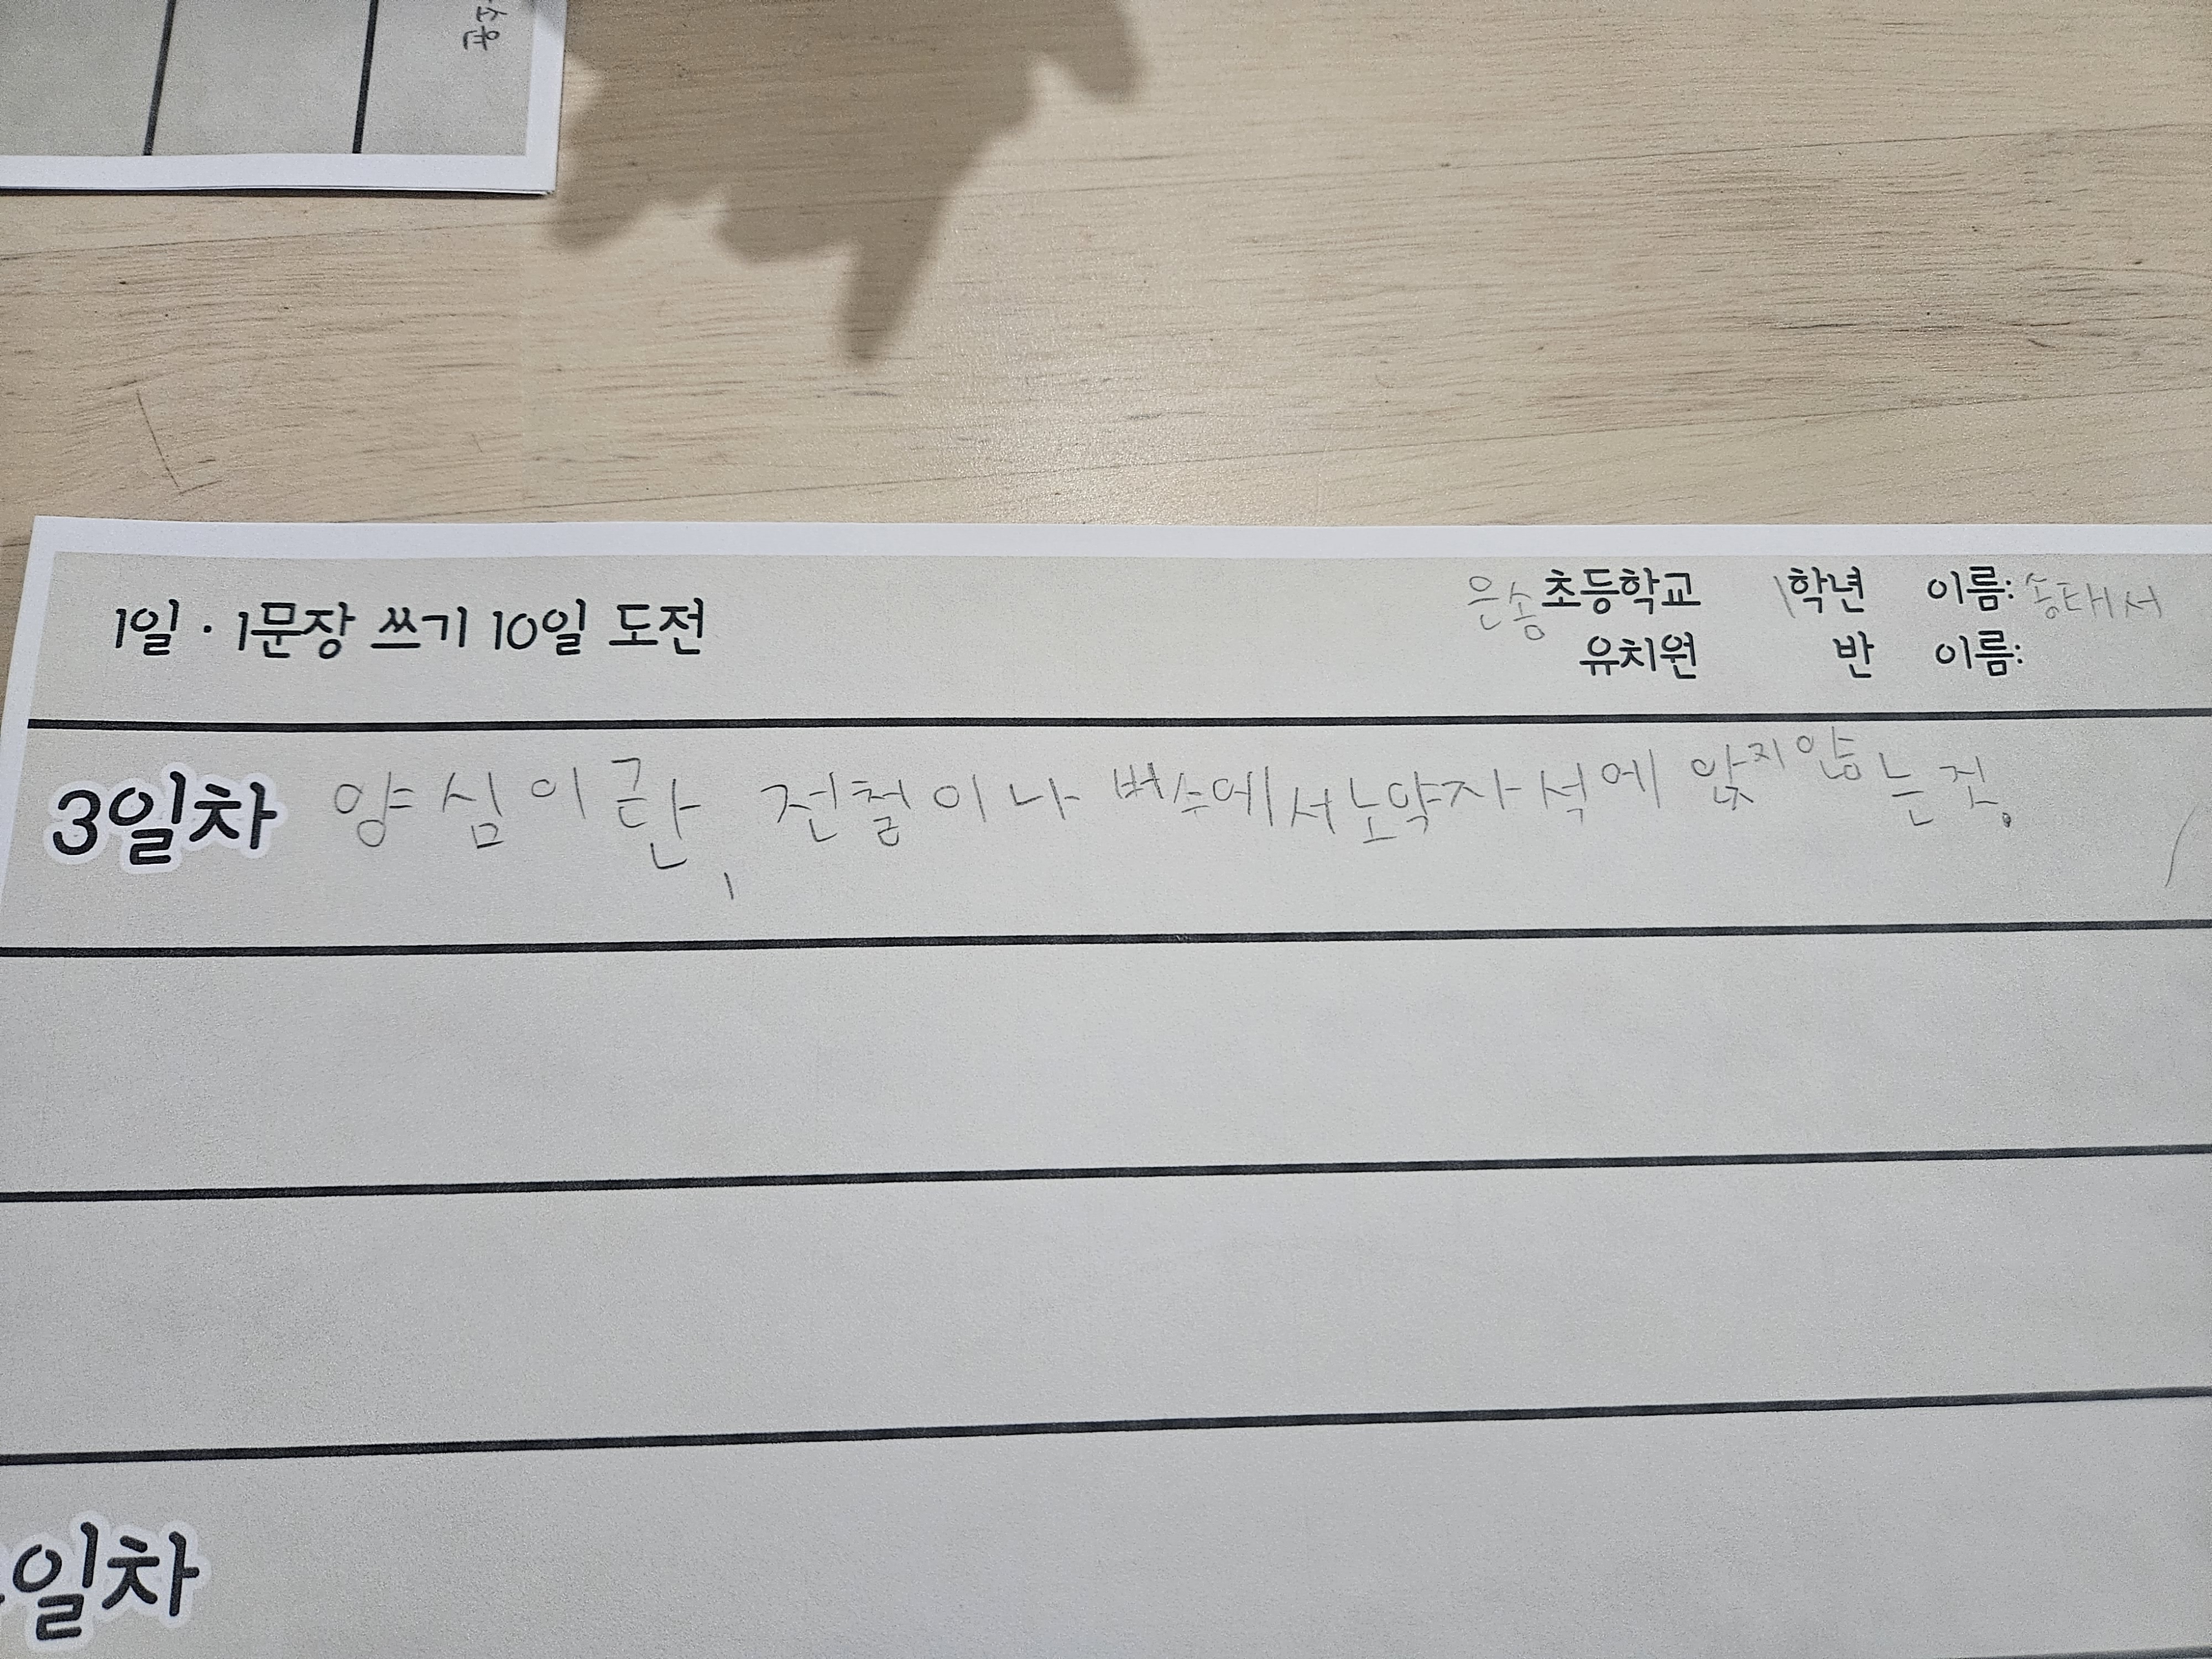 소윤
1일 · 1문장 쓰기 10일 도전
은송초등학교 1학년 이름: 송태서
유치원 반 이름:
3일차 양심이란, 전철이나 버스에서 노약자석에 앉지 않는 것.
일차